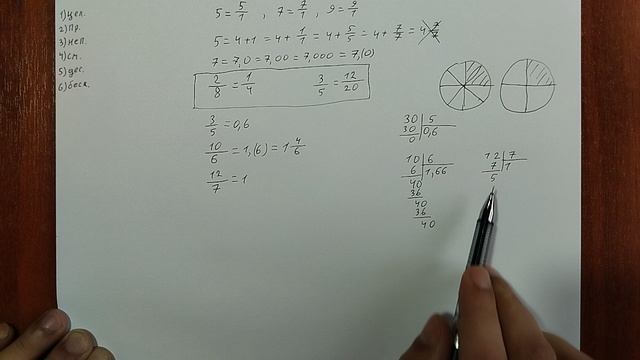 1) цел.
2) Пр.
3) неп.
4) см.
5) дес.
6) беск.
5 = 5/1 , 7 = 7/1 , 9 = 9/1
5 = 4 + 1 = 4 + 1/1 = 4 + 5/5 = 4 + 7/7 = 4 7/7
7 = 7,0 = 7,00 = 7,000 = 7,(0)
2/8 = 1/4 3/5 = 12/20
3/5 = 0,6
10/6 = 1,(6) = 1 4/6
12/7 = 1
30 | 5
30 | 0,6
0
10 | 6
6 | 1,66
40
36
40
36
40
12 | 7
7 | 1
5